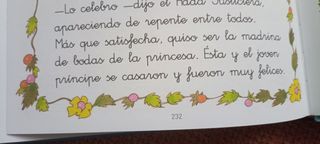 —Lo celebro —dijo el Hada Justiciera,
apareciendo de repente entre todos.
Más que satisfecha, quiso ser la madrina
de bodas de la princesa. Ésta y el joven
príncipe se casaron y fueron muy felices.
232